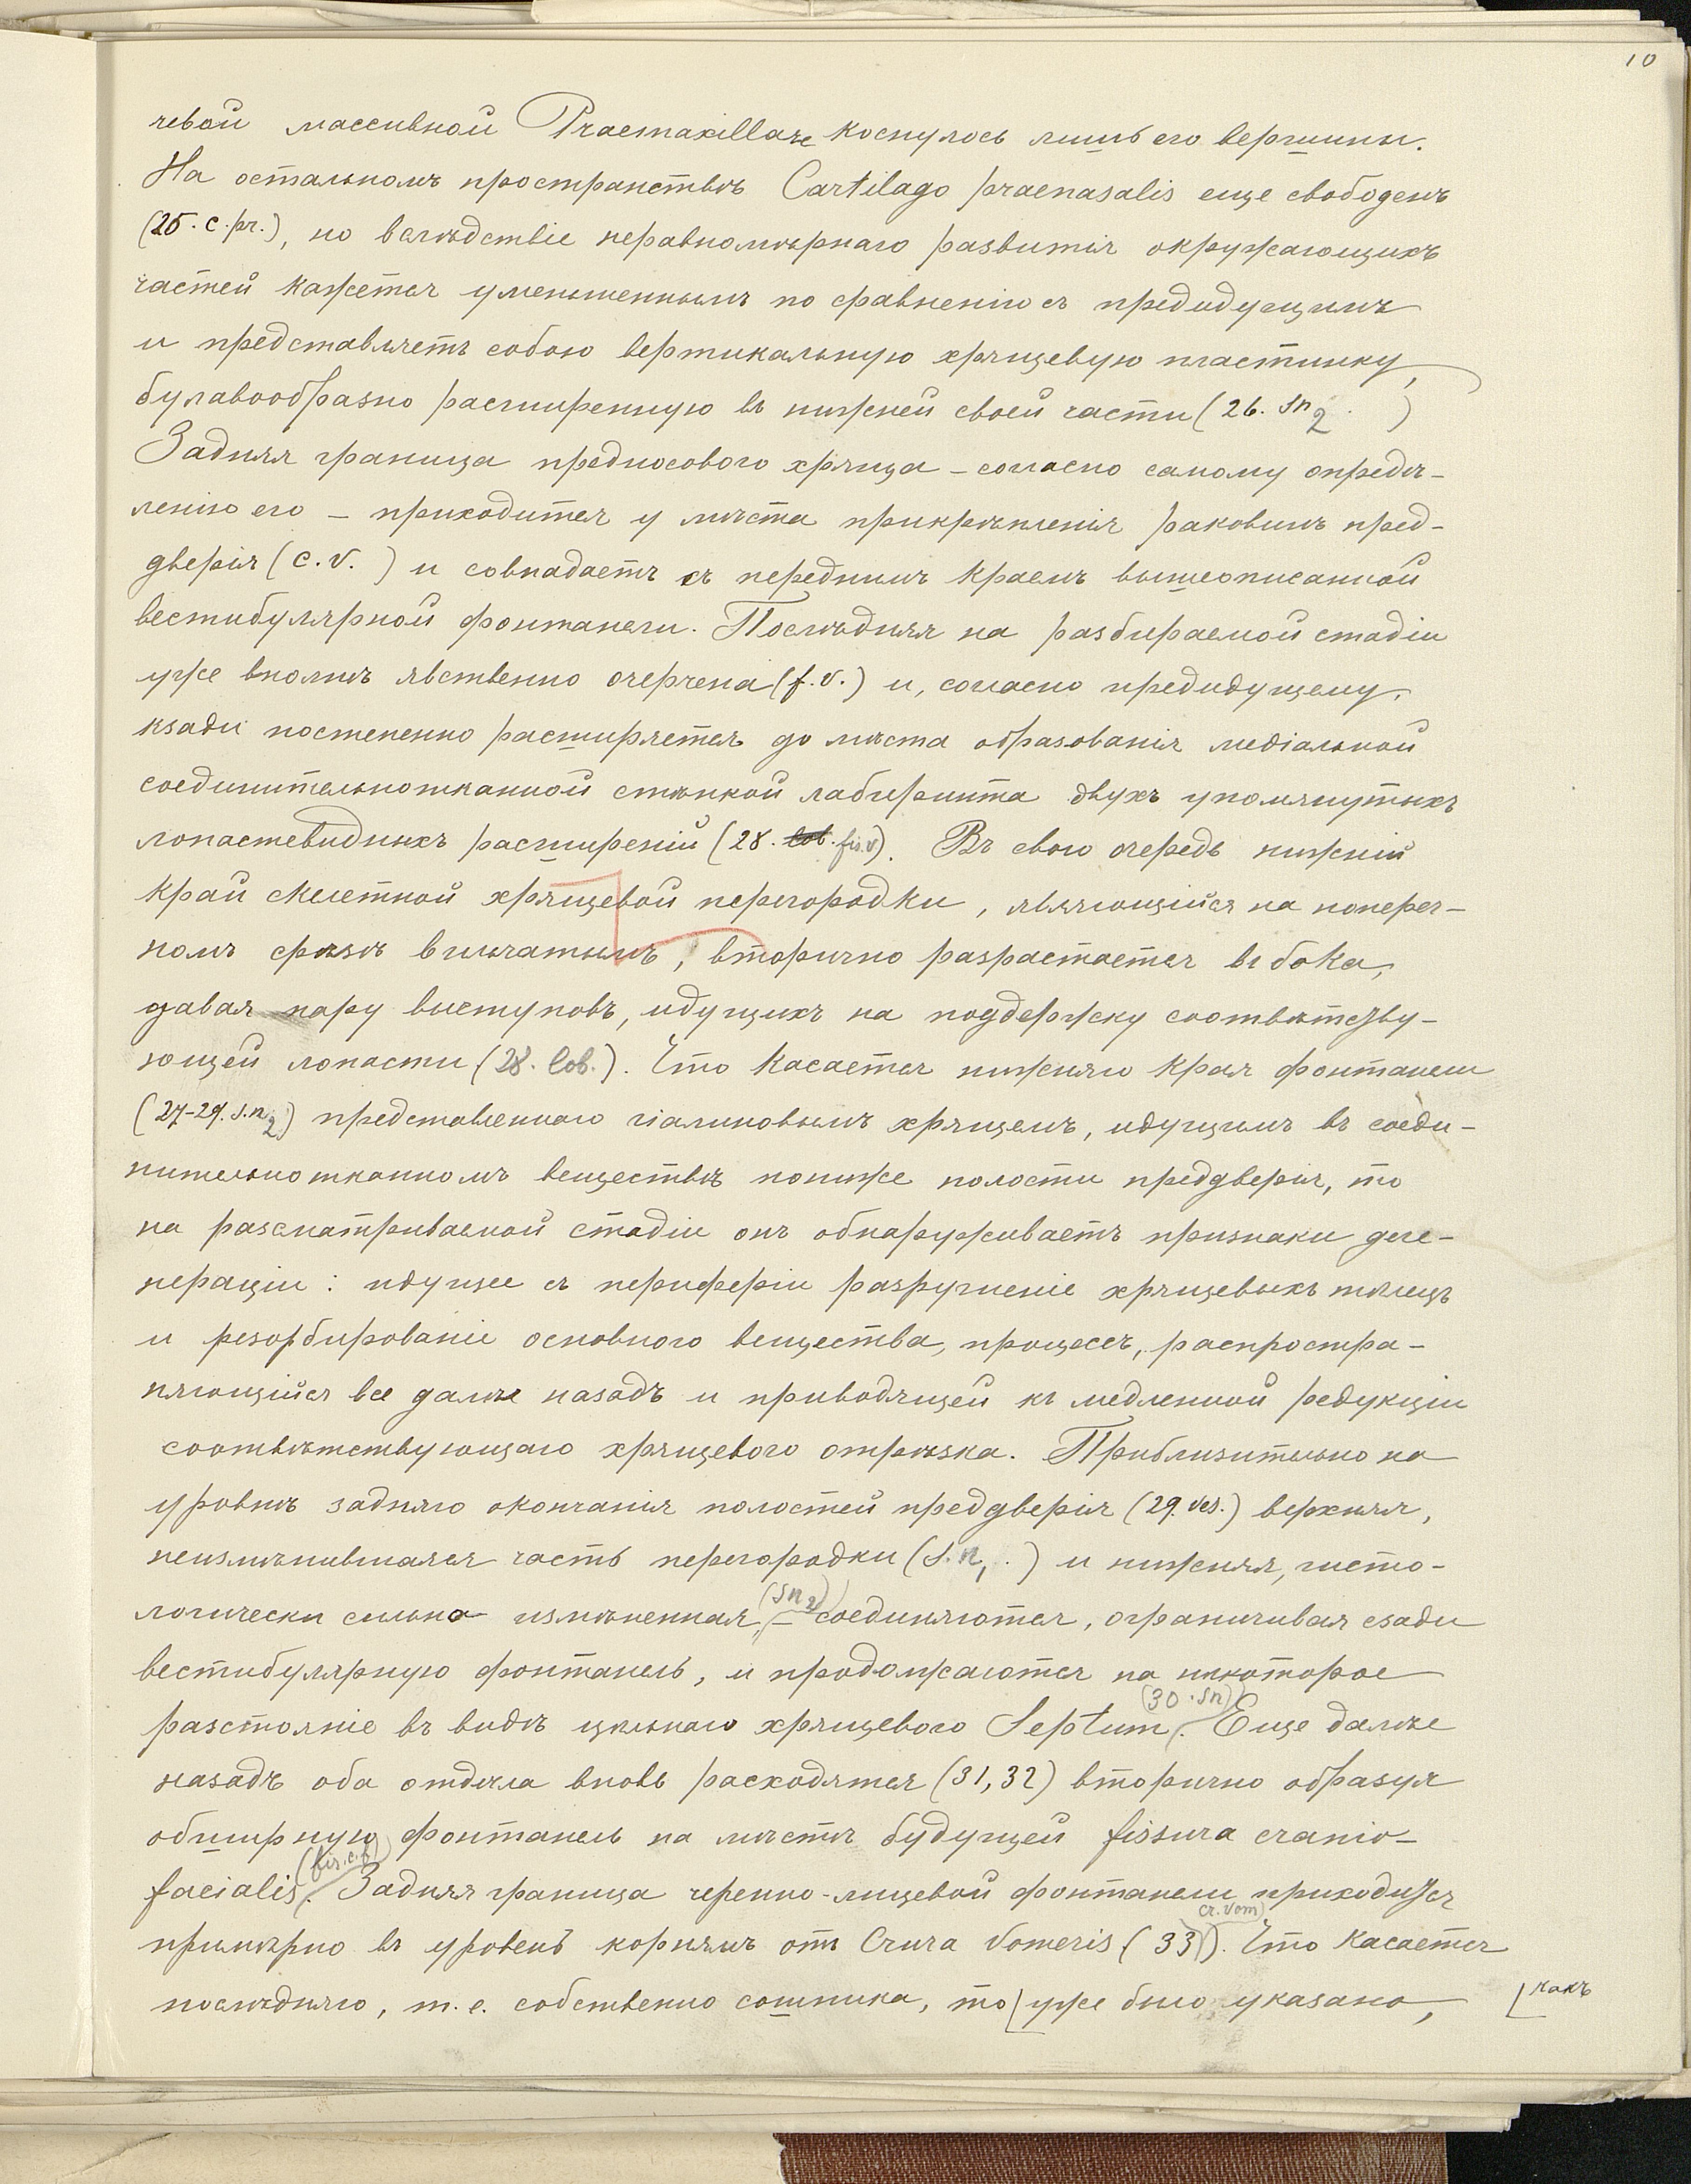 10
чевой массивной Praemaxillare коснулось лишь его вершины.
На остальномъ пространствѣ Cartilago praenasalis еще свободенъ
(25. c. pr.), но вслѣдствіе неравномѣрнаго развитія окружающихъ
частей кажется уменьшеннымъ по сравненію съ предидущимъ
и представляетъ собою вертикальную хрящевую пластинку,
булавообразно расширенную въ нижней своей части (26. sn2. )
Задняя граница предносового хряща – согласно самому опредѣ-
ленію его – приходится у мѣста прикрѣпленія раковинъ пред-
дверія (c. v. ) и совпадаетъ съ переднимъ краемъ вышеописанной
вестибулярной фонтанели. Послѣдняя на разбираемой стадіи
уже вполнѣ явственно очерчена (f. v.) и, согласно предидущему,
кзади постепенно расширяется до мѣста образованія медіальной
соединительнотканной стѣнкой лабиринта двухъ упомянутыхъ
лопастевидныхъ расширеній (28. lob. fis.v). Въ свою очередь нижній
край скелетной хрящевой перегородки, являющійся на попереч-
номъ срѣзѣ вильчатымъ, вторично разрастается въ бока,
давая пару выступовъ, идущихъ на поддержку соотвѣтству-
ющей лопасти (28. lob.). Что касается нижняго края фонтанели
(27-29. s.n.2) представленнаго гіалиновымъ хрящемъ, идущимъ въ соеди-
нительнотканномъ веществѣ пониже полости предверія, то
на разсматриваемой стадіи онъ обнаруживаетъ признаки деге-
нераціи: идущее съ периферіи разрушеніе хрящевыхъ тѣлецъ
и резорбированіе основного вещества, процессъ, распростра-
няющійся все далѣе назадъ и приводящей къ медленной редукціи
соотвѣтствующаго хрящевого отрѣзка. Приблизительно на
уровнѣ задняго окончанія полостей предверія (29. ves.) верхняя,
неизмѣнившаяся часть перегородки (S. n1. ) и нижняя, гисто-
логически сильно измѣненная, (Sn2) – соединяются, ограничивая сзади
вестибулярную фонтанель, и продолжаются на нѣкоторое
разстояніе въ видѣ цѣльнаго хрящевого Septum (30. Sn). Еще далѣе
назадъ оба отдѣла вновь расходятся (31, 32) вторично образуя
обширную фонтанель на мѣстѣ будущей fissura cranio-
facialis (fis. c. f). Задняя граница черепно-лицевой фонтанели приходится
примѣрно въ уровень корнямъ отъ Crura vomeris (33 cr. vom). Что касается
послѣдняго, т. е. собственно сошника, то [уже было указано, [какъ